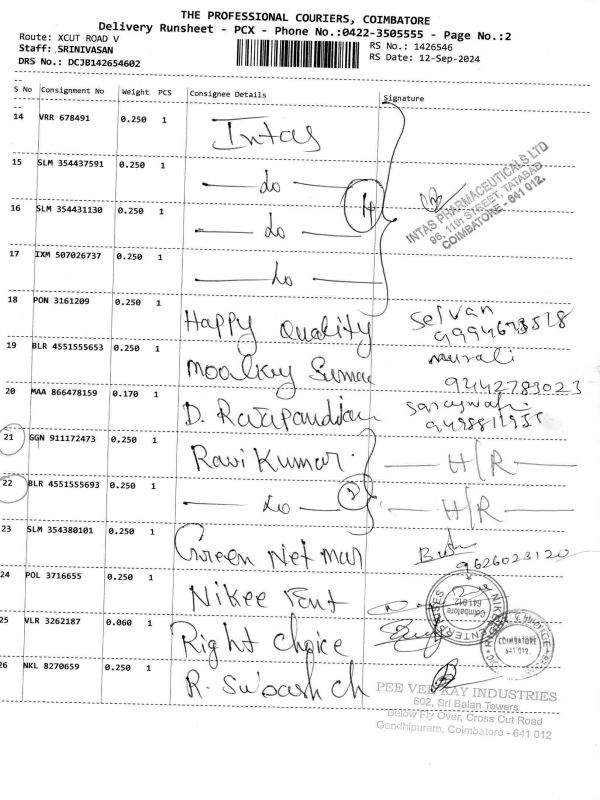 THE PROFESSIONAL COURIERS, COIMBATORE
Delivery Runsheet - PCX - Phone No.:0422-3505555 - Page No.:2
Route: XCUT ROAD V
RS No.: 1426546
Staff: SRINIVASAN
RS Date: 12-Sep-2024
DRS No.: DCJB142654602
S No Consignment No Weight PCS Consignee Details Signature
14 VRR 678491 0.250 1 Intas
15 SLM 354437591 0.250 1 do
INTAS PHARMACEUTICALS LTD
96, 11th STREET, TATABAD
COIMBATORE - 641 012.
16 SLM 354431130 0.250 1 do
17 IXM 507026737 0.250 1 do
18 PON 3161209 0.250 1 Happy Quality Selvan
19 BLR 4551555653 0.250 1 murali
9244278 3023
20 MAA 866478159 0.170 1 D. Rajapandian
21 GGN 911172473 0.250 1 Ravi Kumar. H/R
22 BLR 4551555693 0.250 1 do H/R
23 SLM 354380101 0.250 1 Green Net
9626023120
24 POL 3716655 0.250 1 Nikee
25 VLR 3262187 0.060 1 Right choice
COIMBATORE
641 012.
26 NKL 8270659 0.250 1 R. Subash ch
PEE VEE KAY INDUSTRIES
602, Sri Balan Towers
Below Fly Over, Cross Cut Road
Gandhipuram, Coimbatore - 641 012